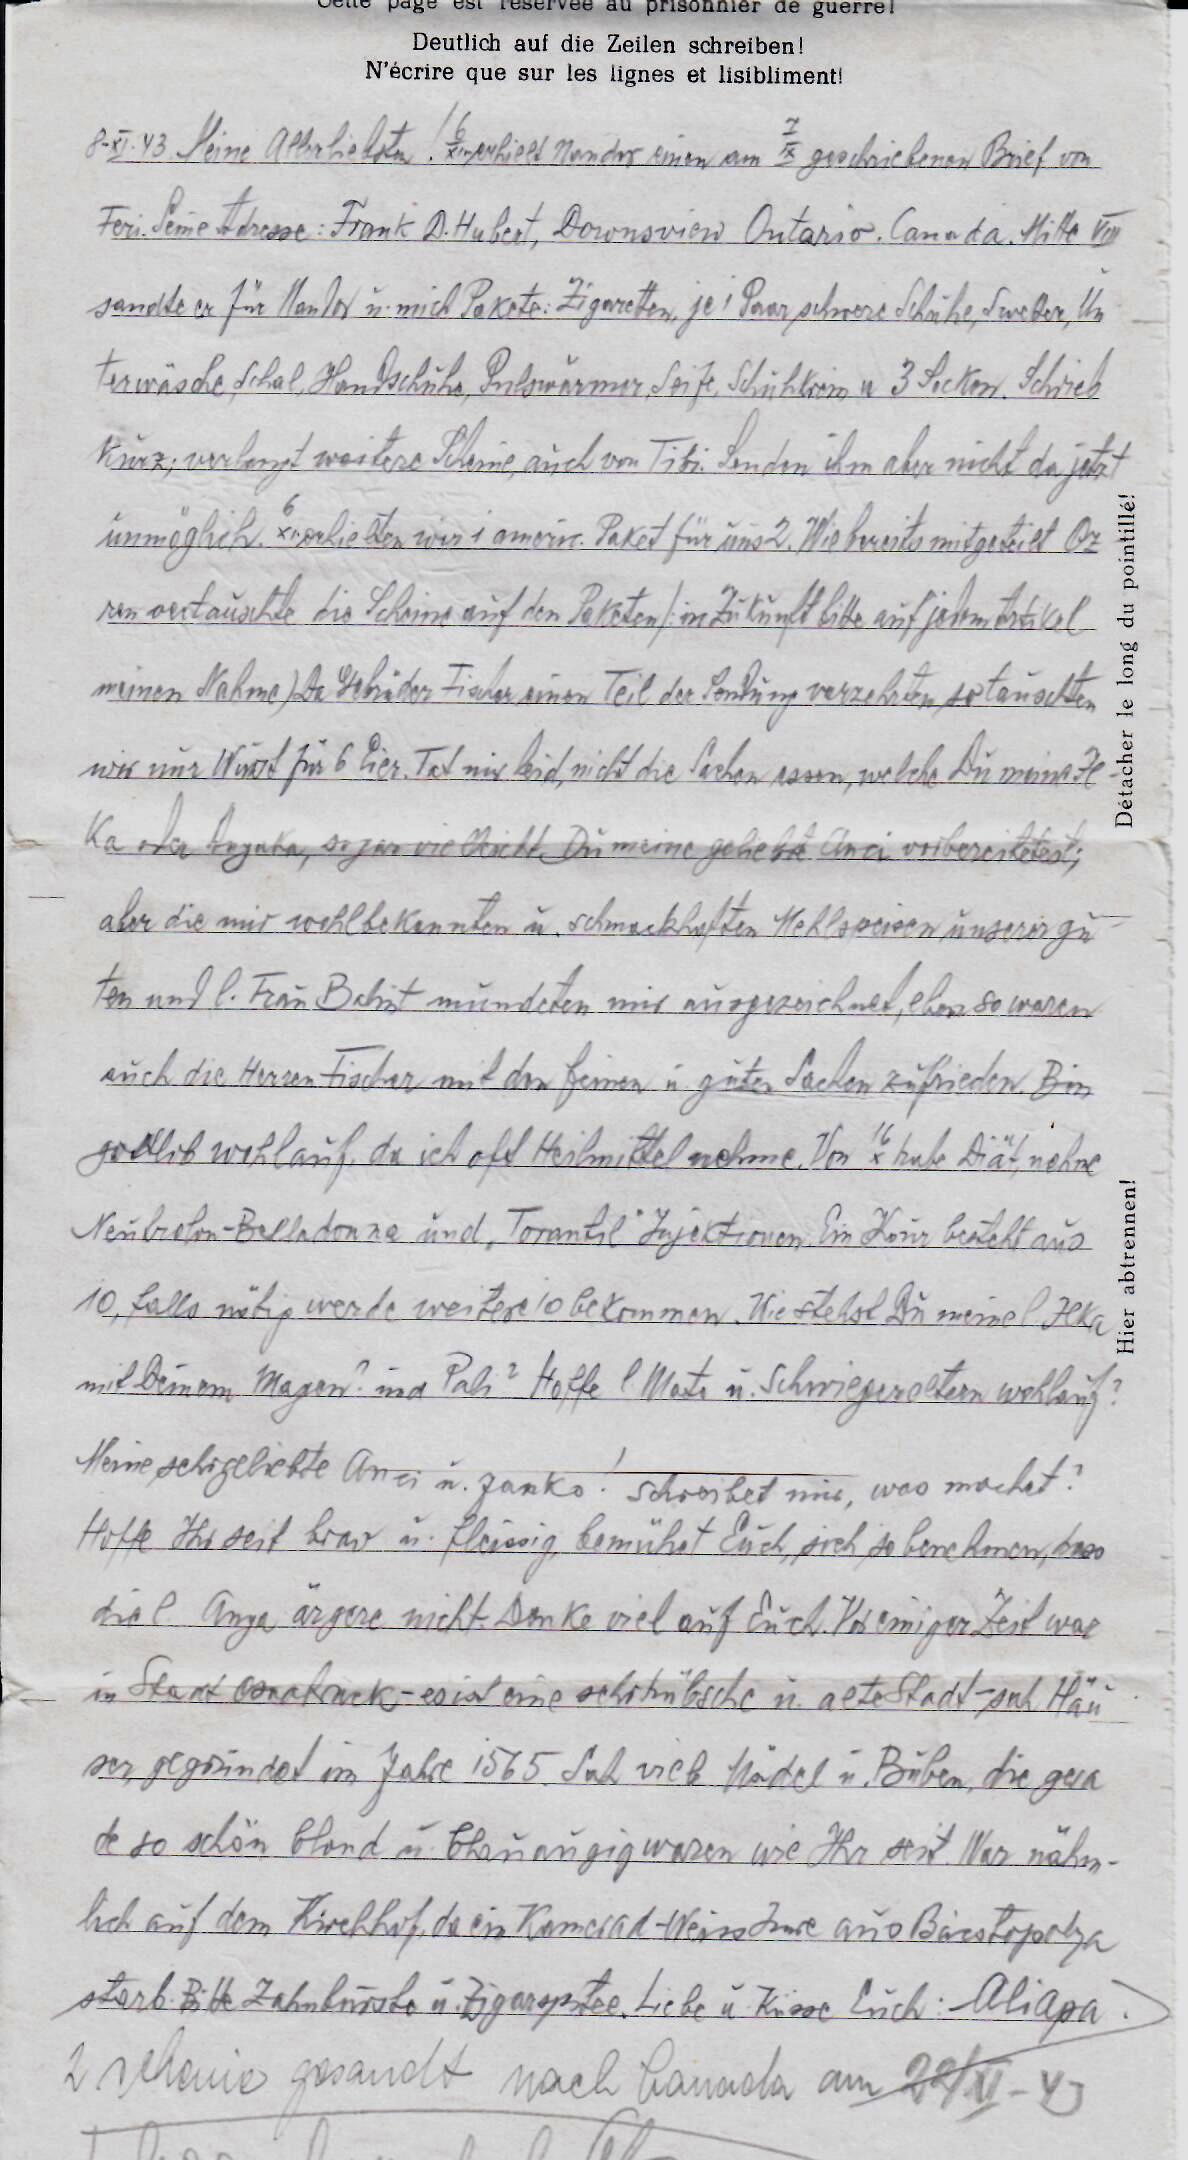 Cette page est réservée au prisonnier de guerre!
Deutlich auf die Zeilen schreiben!
N'écrire que sur les lignes et lisibliment!
8-XI-43 Meine Allerliebsten! 6/XI erhielt Nandor einen am 7/IX geschriebenen Brief von
Feri. Seine Adresse: Frank D. Hubert, Downsview Ontario. Canada. Mitte VIII
sandte er für Nandor u. mich Pakete: Zigaretten, je 1 Paar schwere Schuhe, Sweter, Un
terwäsche, Schal, Handschuhe, Pulswärmer, Seife, Schuhkrem u 3 Socken. Schrieb
kurz; verlangt weitere Scheine, auch von Tibi. Senden ihm aber nicht da jetzt
unmöglich. 6/XI erhielten wir 1 amerik. Paket für uns 2. Wie bereits mitgeteilt
vertauschte die Scheine auf den Paketen /: in Zukunft bitte auf jedem Artikel
meinen Nahme) Da Gebrüder Fischer einen Teil der Sendung verzehrten, so tauschten
wir nur Wurst für 6 Eier. Tat mir leid, nicht die Sachen essen, welche Du meine Il-
ka oder Anyuka, sogar vielleicht Du meine geliebte Anci vorbereitetest;
aber die mir wohlbekannten u. schmackhaften Mehlspeisen unserer gu
ten und l. Frau Balint mundeten mir ausgezeichnet, eben so waren
auch die Herren Fischer mit den feinen u. guten Sachen zufrieden. Bin
gottlob wohlauf, da ich oft Heilmittel nehme. Von 16/X habe Diät, nehme
Neubrolon-Belladonna und „Torantil" Injektionen. Ein Kour besteht aus
10, falls nötig werde weitere 10 bekommen. Wie stehst Du meine l. Ilka
mit Deinem Magen? und Pali? Hoffe l. Mata u. Schwiegereltern wohlauf?
Meine sehrgeliebte Anci u. Janko! Schreibet mir, was machet?
Hoffe Ihr seit brav u. fleissig, bemühet Euch, sich so benehmen, dass
die l. Anya ärgere nicht. Denke viel auf Euch. Vor einiger Zeit war
in Stadt Osnabruck - es ist eine sehr hübsche u. alte Stadt - sah Häu
ser, gegründet im Jahre 1565. Sah viele Mädel u. Buben, die gera
de so schön blond u. blauaugig waren wie Ihr seit. War nähm-
lich auf dem Kirchhof, da ein Kamerad - Weiss Imre aus Bácstopolya
starb. Bitte Zahnbürste u. Zigarspitze. Liebe u. Küsse Euch: Aliapa.
2 Scheine gesandt nach Canada am 22/XI-43
Détacher le long du pointillé!
Hier abtrennen!